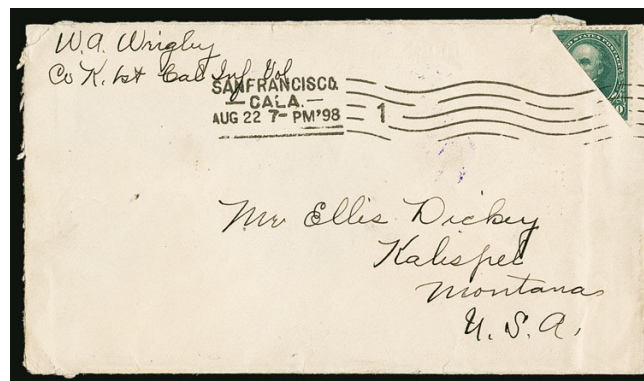 W.A. Wrigley
Co K. 1st Cal Inf Vol
SAN FRANCISCO.
CALA.
AUG 22 7- PM '98
1
Mr Ellis Dickey
Kalispel
Montana
U.S.A.